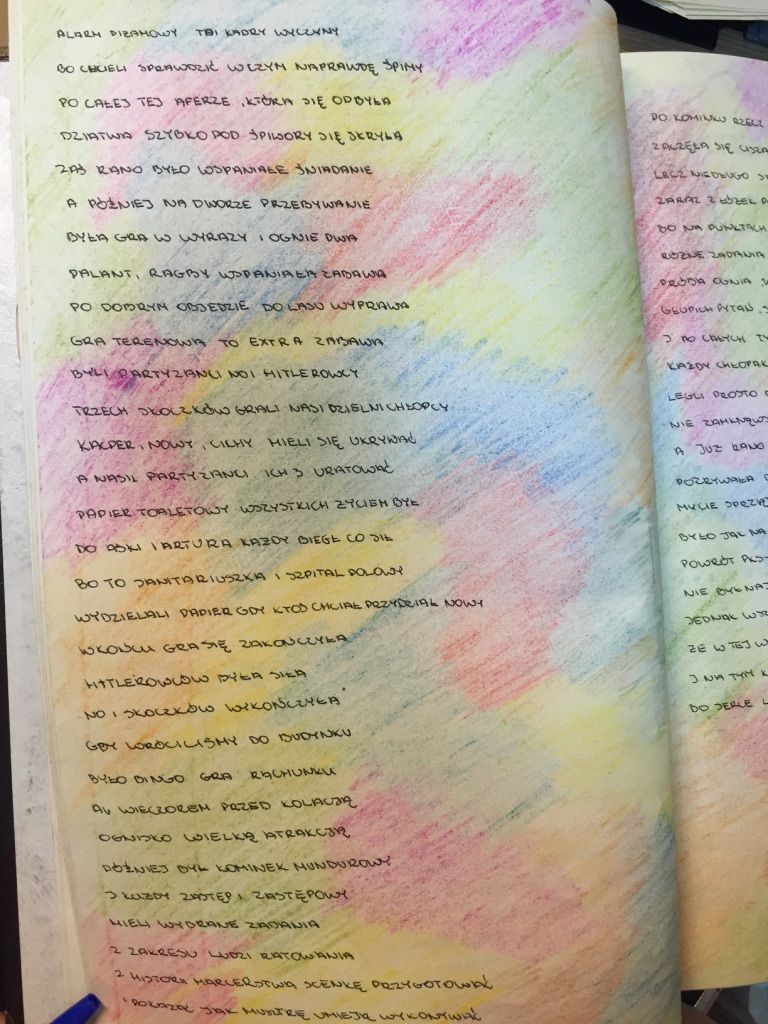 ALARM PIŻAMOWY TO I KADRY WYCZYNY
BO CHCIELI SPRAWDZIĆ W CZYM NAPRAWDĘ ŚPIMY
PO CAŁEJ TEJ AFERZE, KTÓRA SIĘ ODBYŁA
DZIATWA SZYBKO POD ŚPIWORY SIĘ SKRYŁA
ZAŚ RANO BYŁO WSPANIAŁE ŚNIADANIE
A PÓŹNIEJ NA DWORZE PRZEBYWANIE
BYŁA GRA W WYRAZY I OGNIE DWA
PALANT, RAGBY WSPANIAŁA ZABAWA
PO DOBRYM OBJEDZIE DO LASU WYPRAWA
GRA TERENOWA TO EXTRA ZABAWA
BYLI PARTYZANCI NO I HITLEROWCY
TRZECH SKOCZKÓW GRALI NASI DZIELNI CHŁOPCY
KACPER, NOWY, CICHY MIELI SIĘ UKRYWAĆ
A NASI PARTYZANCI ICH 3 URATOWAĆ
PAPIER TOALETOWY WSZYSTKICH ŻYCIEM BYŁ
DO ASKI I ARTURA KAŻDY BIEGŁ CO SIŁ
BO TO SANITARIUSZKA I SZPITAL POLOWY
WYDZIELALI PAPIER GDY KTOŚ CHCIAŁ PRZYDZIAŁ NOWY
W KOŃCU GRA SIĘ ZAKOŃCZYŁA
HITLEROWCÓW BYŁA SIŁA
NO I SKOCZKÓW WYKOŃCZYŁA
GDY WRÓCILIŚMY DO BUDYNKU
BYŁO BINGO GRA RACHUNKU
WIECZOREM PRZED KOLACJĄ
OGNISKO WIELKĄ ATRAKCJĄ
PÓŹNIEJ BYŁ KOMINEK MUNDUROWY
I KAŻDY ZASTĘP I ZASTĘPOWY
MIELI WYBRANE ZADANIA
Z ZAKRESU LUDZI RATOWANIA
Z HISTORII HARCERSTWA SCENKĘ PRZYGOTOWAĆ
POKAZAĆ JAK MUSTRĘ UMIEJĄ WYKONYWAĆ
DO KOMINKU RZECZ
ZACZĘŁA SIĘ CISZA
LECZ NIEDŁUGO
ZARAZ Z ŁÓŻEK
BO NA PUNKTACH
RÓŻNE ZADANIA
PRÓBA OGNIA
GŁUPICH PYTAŃ
I PO CAŁYCH
KAŻDY CHŁOPAK
LEGLI PROSTO
NIE ZAMKNĄWSZ
A JUŻ RANO
POZRYWAŁA
MYCIE SPRZĄ
BYŁO JAK NA
POWRÓT PKS
NIE BYŁ NAJ
JEDNAK
ŻE W TEJ
I NA TYM
DO SERCE